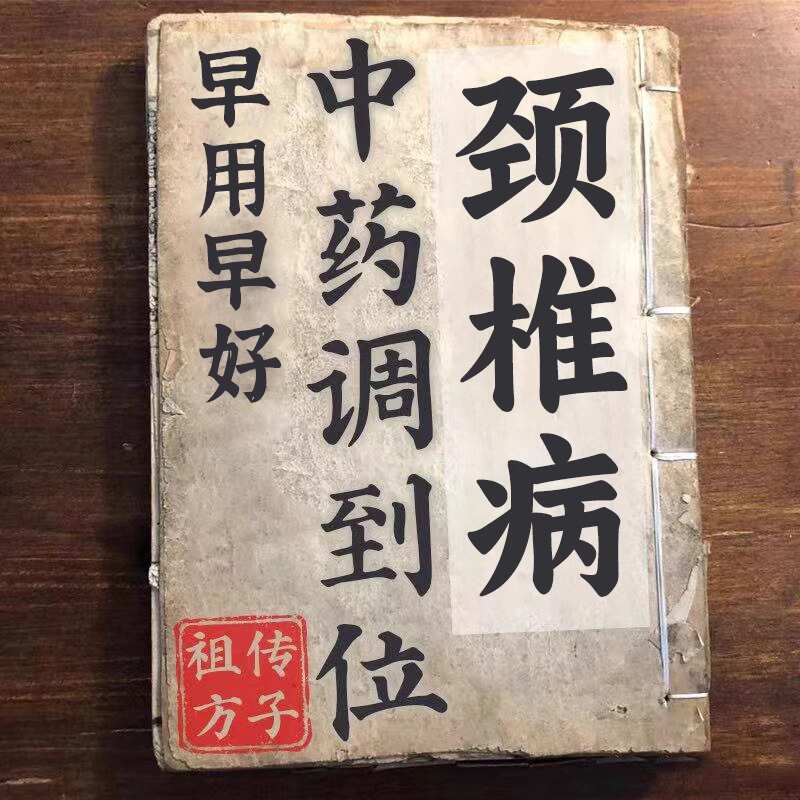 颈椎病
中药调到位
早用早好
祖传
方子